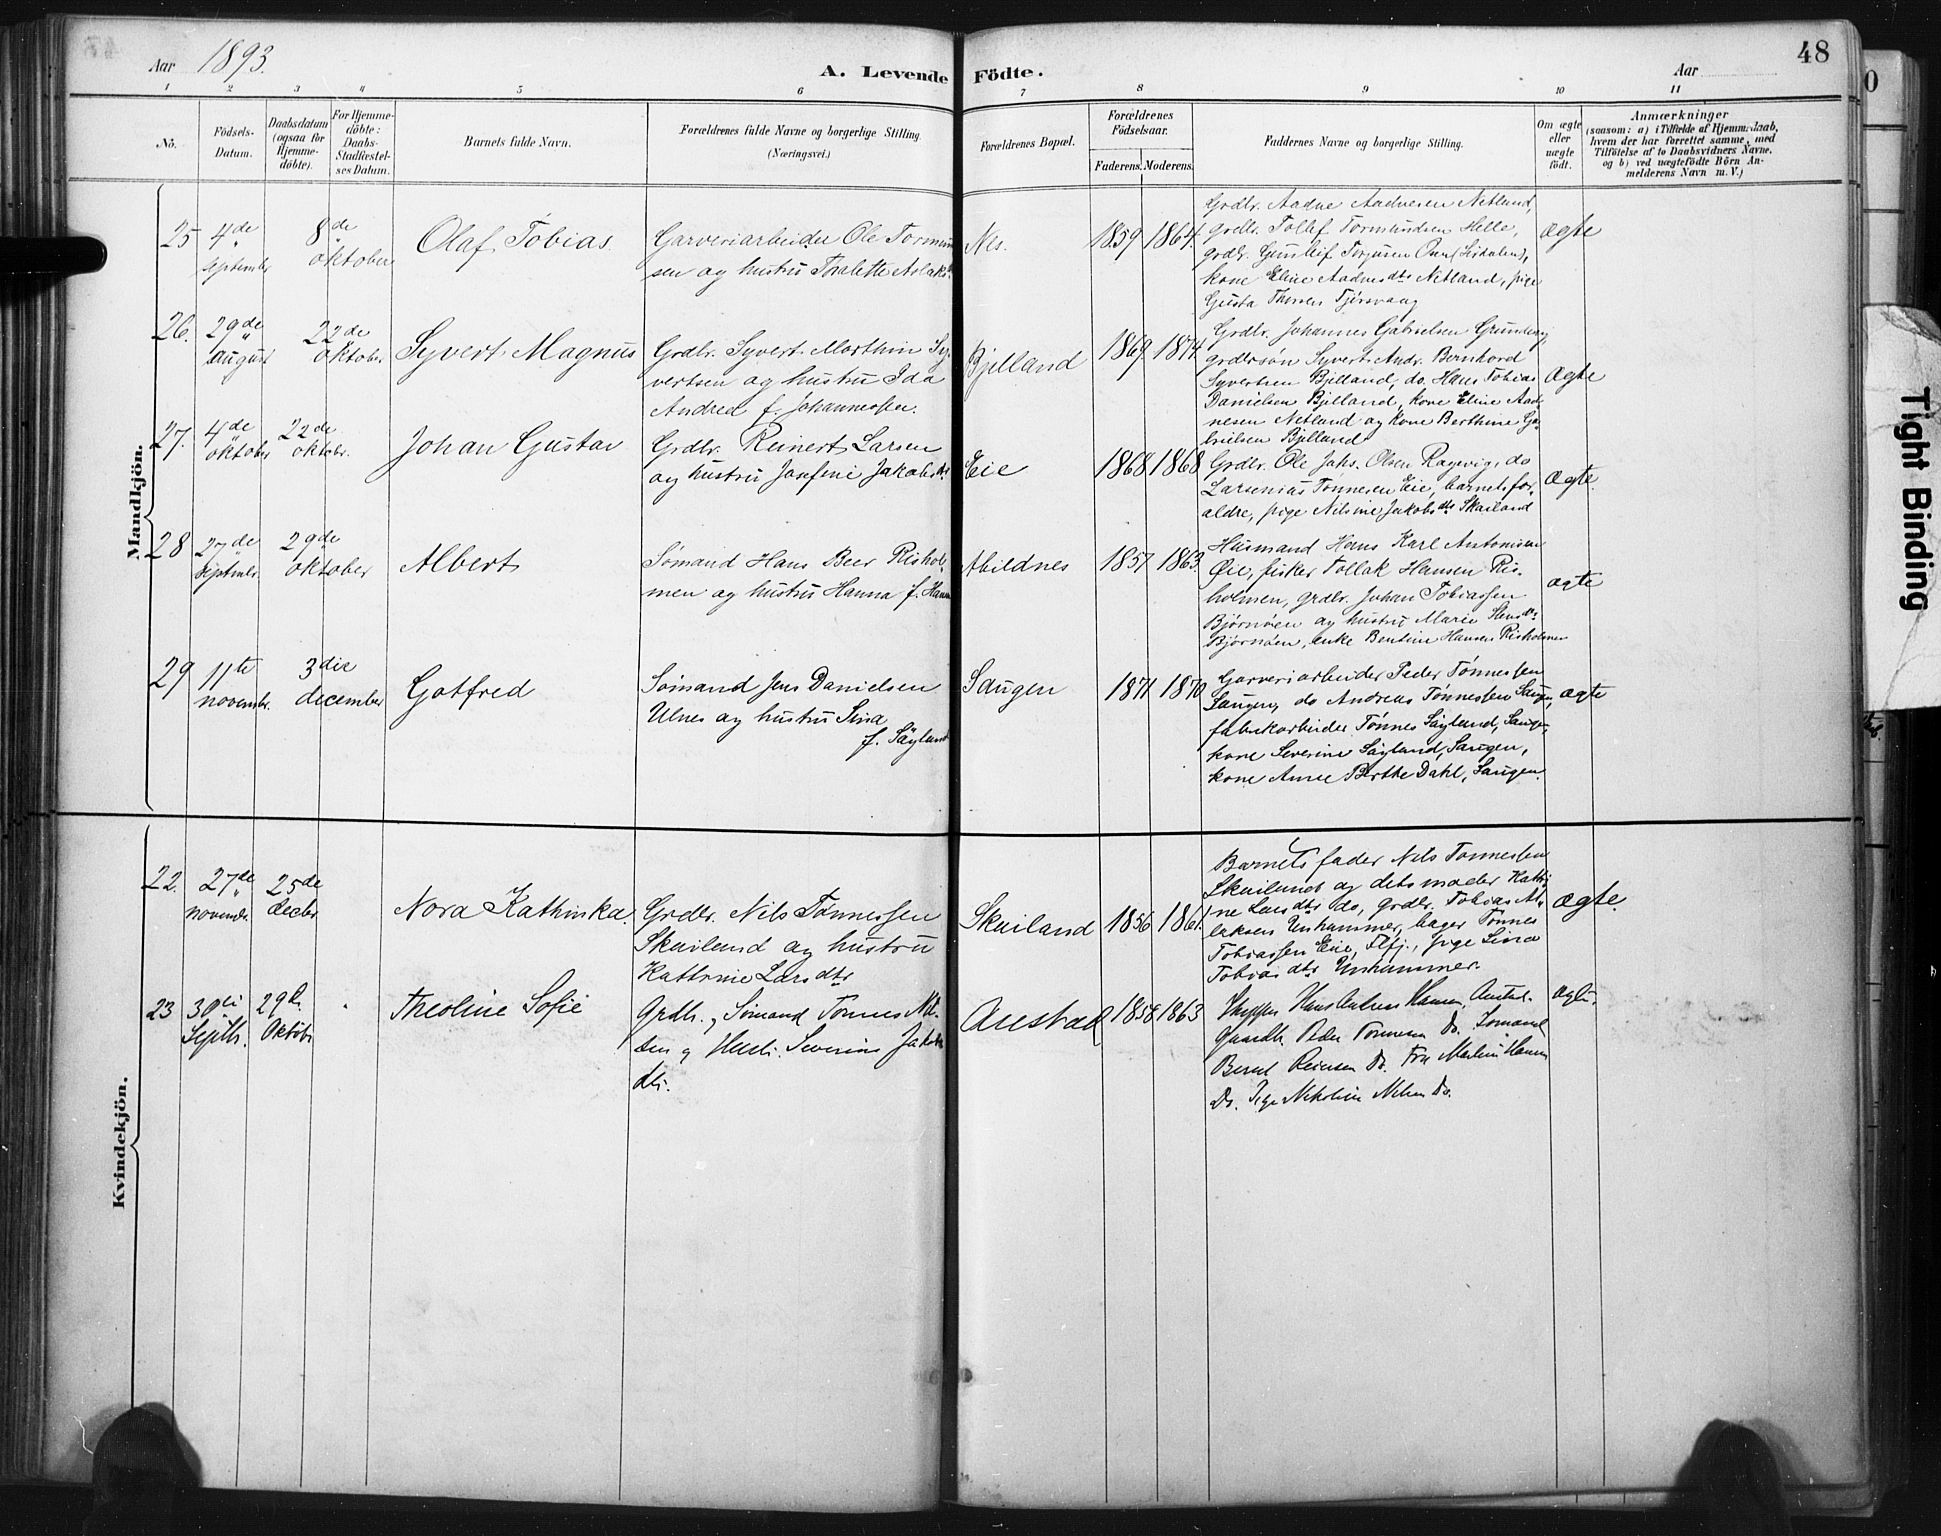 48
Aar 1893.
A. Levende Födte.
Aar
1 2 3 4 5 6 7 8 9 10 11
No.
Födsels-
Datum.
Daabsdatum
(ogsaa för
Hjemme-
döbte).
For Hjemme-
döbte:
Daabs-
Stadfæstel-
ses Datum.
Barnets fulde Navn.
Forældrenes fulde Navne og borgerlige Stilling.
(Næringsvei.)
Forældrenes Bopæl.
Forældrenes
Födselsaar.
Faderens. Moderens.
Faddernes Navne og borgerlige Stilling.
Om ægte
eller
uægte
födt.
Anmærkninger
(saasom: a) i Tilfælde af Hjemmedaab,
hvem der har forrettet samme, med
Tilföielse af to Daabsvidners Navne,
og b) ved uægtefödte Börn An-
melderens Navn m. V.)
Mandkjön.
25
4de
september
8de
oktober
Olaf Tobias.
Garveriarbeider Ole
sen og hustru
Nes.
1859 1864.
Grdbr. Aadne Aadnesen Netland,
grdbr. Tollef Tormundsen Helle,
grdbr. Gunstif Torjusen
kone Eline Aadnesdtr Netland, pige
Gusta
ægte
26.
29de
august
22de
oktober
Syvert Magnus
Grdbr. Syvert Marthin Sy-
vertsen og hustru Ida
Andrea f. Johannessen.
Bjelland
1869. 1874.
Grdbr. Johannes Gabrielsen
grdbrsøn Syvert Andr. Bernhard
Syvertsen Bjelland, do. Hans Tobias
Danielsen Bjelland, kone Eline Aad-
nesen Netland og kone Berthine Ga-
brielsen Bjelland
Ægte
27.
4de
oktober
22de
oktobr.
Johan Gustav
Grdbr. Reinert Larsen
og hustru Josefine Jakobsdtr.
Eie
1868 1868
Grdbr. Ole Johs. Olsen Ragevig, do
Larsenius Tønnesen Eie, barnets for-
ældre, pige Nilsine Jakobsdtr Skailand
Ægte.
28
27de
septembr.
29de
oktober
Albert
Sømand Hans Beer Rishol-
men og hustru Hanna f. Hansen
Abildnes
1857 1863.
Husmand Hans Karl Antonisen
Øie, fisker Tollak Hansen Ris-
holmen, grdbr. Johan Tobiassen
Bjørnøen og hustru Marie
Bjørnøen, enke Bentine Hansen Risholmen
ægte
29
11te
novembr.
3die
december
Gotfred
Sømand Jens Danielsen
Ulnes og hustru Sina
f. Søyland
Saugen
1871 1870
Garveriarbeider Peder Tønnessen
Saugen, do Andreas Tønnessen Saugen,
fabrikarbeider Tønnes Søyland, Saugen,
kone Severine Søyland, Saugen,
kone Anne Berthe Dahl, Saugen.
ægte
Kvindekjön.
22.
27de
novembr.
25de
decbr.
Nora Kathinka.
Grdbr. Nils Tønnessen
Skailand og hustru
Kathrine Larsdtr
Skailand
1856 1861.
Barnets fader Nils Tønnessen
Skailand og dets moder Kathri-
ne Larsdtr do, grdbr. Tobias
Unhammer, bager Tønnes
Tobiassen Eie, Flfj., pige Sina
Tobiasdtr Unhammer.
ægte.
23
30te
Septbr.
29de
Oktobr
Theoline Sofie
Grdbr. og Sømand Tønnes
sen og Hustr. Severine Jakobs
dtr.
Austad
1858 1863
Skipper Hans Andreas Hansen, Austad.
Gaardbr. Peder Tønnesen Do. Sømand
Bernt Reiersen Do. Fru Hansen
Do. Pige Nikoline Nilsen Do.
ægte.
Tight Binding